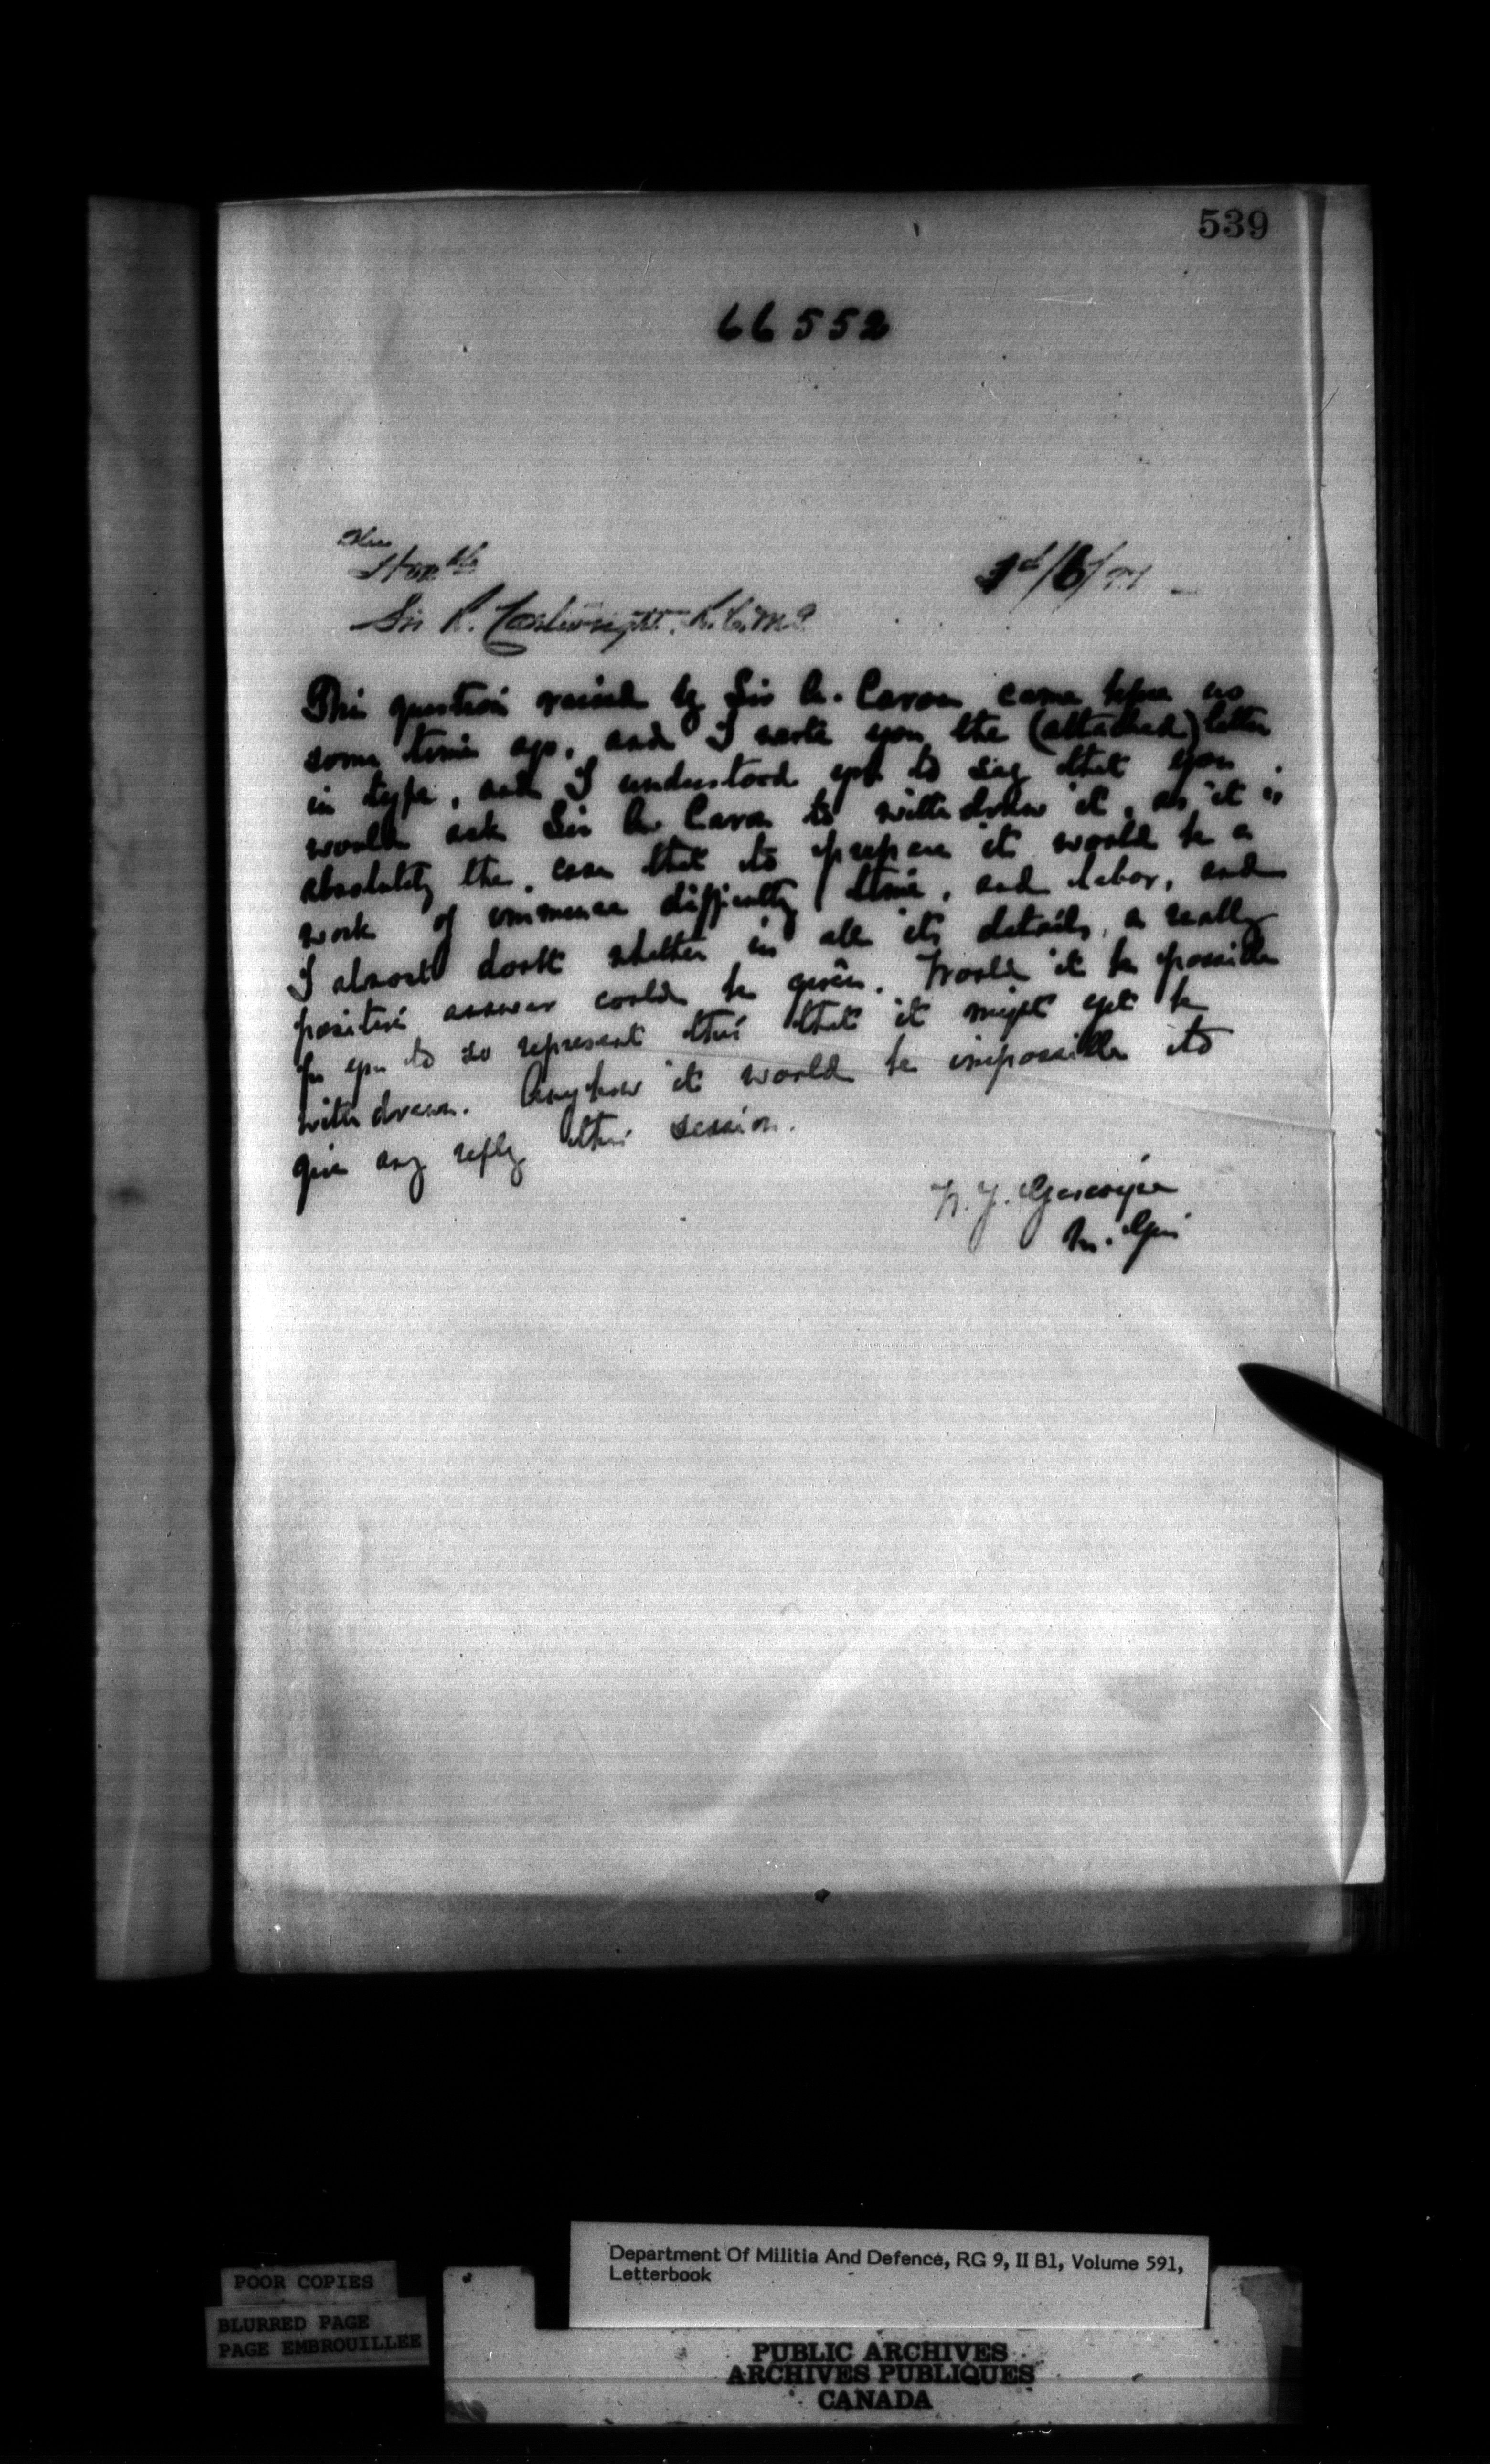 539
66552
The
Honble
Sir R. Cartwright. K.C.M.G.
This question raised by Sir A. Caron came before us
some time ago, and I wrote you the (attached) letter
in type, and I understood you to say that you
would ask Sir A. Caron to withdraw it, as it is
absolutely the case that to prepare it would be a
work of immense difficulty time, and labor, and
I almost doubt whether in all its details, a really
positive answer could be given. Would it be possible
for you to so represent this that it might yet be
withdrawn. Anyhow it would be impossible to
give any reply this session.
M. Gen
Department Of Militia And Defence, RG 9, II B1, Volume 591,
Letterbook
POOR COPIES
BLURRED PAGE
PAGE EMBROUILLEE
PUBLIC ARCHIVES
ARCHIVES PUBLIQUES
CANADA